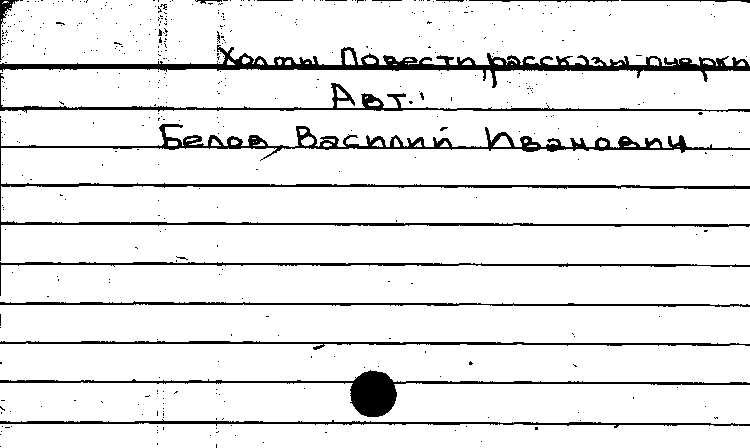 Холмы Повести, рассказы, очерки
Авт.:
Белов, Василий Иванович